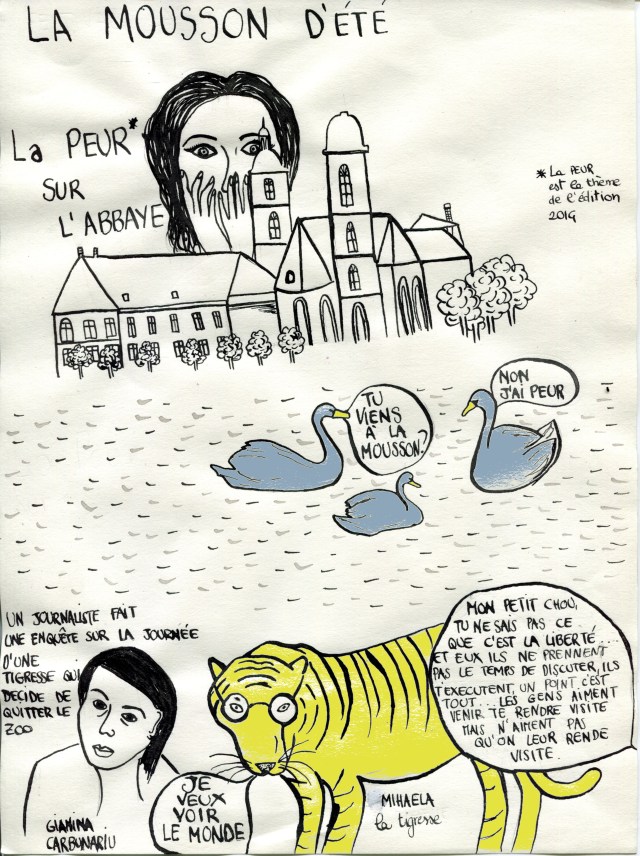 LA MOUSSON D'ÉTÉ
La PEUR*
SUR
L'ABBAYE
* La PEUR
est le thème
de l'édition
2019
TU
VIENS
À LA
MOUSSON?
NON
J'AI PEUR
UN JOURNALISTE FAIT
UNE ENQUÊTE SUR LA JOURNÉE
D'UNE
TIGRESSE QUI
DECIDE DE
QUITTER LE
ZOO
GIANINA
CARBUNARIU
JE
VEUX
VOIR
LE MONDE
MIHAELA
la tigresse
MON PETIT CHOU,
TU NE SAIS PAS CE
QUE C'EST LA LIBERTÉ...
ET EUX ILS NE PRENNENT
PAS LE TEMPS DE DISCUTER, ILS
T'EXECUTENT, UN POINT C'EST
TOUT... LES GENS AIMENT
VENIR TE RENDRE VISITE
MAIS N'AIMENT PAS
QU'ON LEUR RENDE
VISITE.